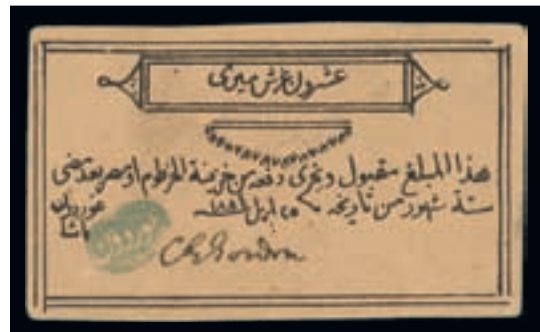 عشرون غرش ميرى
هذا المبلغ مقبول ويجرى دفعه من خزينة الخرطوم او مصر بعد مضى
ستة شهور من تاريخه ٢٥ ابريل ١٨٨٤
غوردون
باشا
C G Gordon